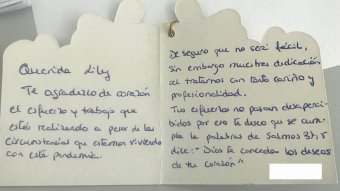 Querida Lily
Te agradezco de corazón
el esfuerzo y trabajo que
estás realizando a pesar de las
circunstancias que estamos viviendo
con esta pandemia.
De seguro que no será fácil,
sin embargo muestras dedicación
al tratarnos con tanto cariño y
profesionalidad.
Tus esfuerzos no pasan desaperci-
bidos por eso te deseo que se cum-
pla la palabras de Salmos 37:5
dice:- Dios te conceda los deseos
de tu corazón"